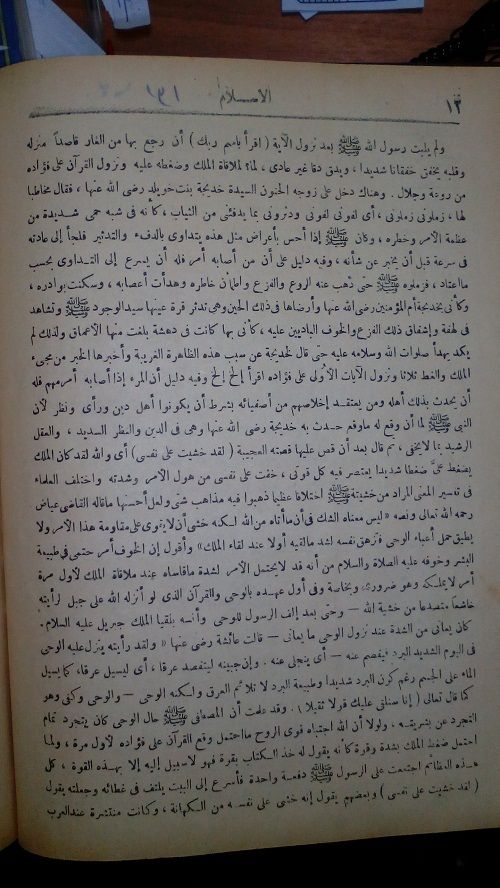 ١٢ الاسلام ١٣١
ولم يلبث رسول الله ﷺ بعد نزول الآية ( اقرأ باسم ربك ) أن رجع بها من الغار قاصداً منزله
وقلبه يخفق خفقانا شديدا ، ويدق دقا غير عادى ، لما لملاقاة الملك وضغطه عليه ونزول القرآن على فؤاده
من روعة وجلال . وهناك دخل على زوجه الحنون السيدة خديجة بنت خويلد رضى الله عنها ، فقال مخاطبا
لها ، زملونى زملونى ، أى لفونى لفونى ودثرونى بما يدفئنى من الثياب ، كأنه فى شبه حمى شديدة من
عظمة الأمر وخطره ، وكان ﷺ إذا أحس بأعراض مثل هذه يتداوى بالدفء والتدثير فلجأ إلى عادته
فى سرعة قبل أن يخبر عن شأنه ، وفيه دليل على أن من أصابه أمر فله أن يسرع إلى التداوى بحسب
ما اعتاد ، فزملوه ﷺ حتى ذهب عنه الروع والفزع واطمأن خاطره وهدأت أعصابه ، وسكنت بوادره ،
وكأنى بخديجة أم المؤمنين رضى الله عنها وأرضاها فى ذلك الحين وهى تدثر قرة عينها سيد الوجود ﷺ وتشاهد
فى لهفة وإشفاق ذلك الفزع والخوف الباديين عليه ، كأنى بها كانت فى دهشة بلغت منها الأعماق ولذلك لم
يكد يهدأ صلوات الله وسلامه عليه حتى قال لخديجة عن سبب هذه الظاهرة الغريبة وأخبرها الخبر من مجىء
الملك والغط ثلاثا ونزول الآيات الأولى على فؤاده اقرأ إلخ إلخ وفيه دليل أن المرء إذا أصابه أمر مهم فله
أن يحدث بذلك أهله ومن يعتقد إخلاصهم من أصفيائه بشرط أن يكونوا أهل دين ورأى ونظر لأن
النبى ﷺ لما أن وقع له ماوقع حدث به خديجة رضى الله عنها وهى فى الدين والنظر السديد ، والعقل
الرشيد بما لايخفى ، ثم قال بعد أن قص عليها قصته العجيبة ( لقد خشيت على نفسى ) أى والله لقد كان الملك
يضغط علىّ ضغطا شديدا يعتصر فيه كل قوتى ، خفت على نفسى من هول الأمر وشدته واختلف العلماء
فى تفسير المعنى المراد من خشيته ﷺ اختلافا عظيما ذهبوا فيه مذاهب شتى ولعل أحسنها ماقاله القاضى عياض
رحمه الله تعالى ونصه « ليس معناه الشك فى أن ماأتاه من الله لكنه خشى أن لايقوى على مقاومة هذا الأمر ولا
يطيق حمل أعباء الوحى فتزهق نفسه لشد مالقيه أولا عند لقاء الملك » وأقول إن الخوف أمر حتمى فى طبيعة
البشر وخوفه عليه الصلاة والسلام من أنه قد لايحتمل الأمر لشدة ماقاساه عند ملاقاة الملك لأول مرة
أمر لايملكه وهو ضرورى وبخاصة وفى أول عهده بالوحى والقرآن الذى لو أنزله الله على جبل لرأيته
خاشعا متصدعا من خشية الله — وحتى بعد إلف الرسول للوحى وأنسه بلقيا الملك جبريل عليه السلام .
كان يعانى من الشدة عند نزول الوحى ما يعانى — قالت عائشة رضى عنها « ولقد رأيته ينزل عليه الوحى
فى اليوم الشديد البرد فيفصم عنه — أى ينجلى عنه . وإن جبينه ليتفصد عرقا ، أى ليسيل عرقا ، كما يسيل
الماء على الجسم رغم كون البرد شديدا وطبيعة البرد لا تلائم العرق ولكنه الوحى — والوحى وكفى وهو
كما قال تعالى ( إنا سنلقى عليك قولا ثقيلا ) . وقد علمت أن المصطفى ﷺ حال الوحى كان يتجرد تمام
التجرد عن بشريته . ولولا أن الله اجتباه قوى الروح مااحتمل وقع القرآن على فؤاده لأول مرة ، ولما
احتمل ضغط الملك بشدة وقوة كأنه يقول له خذ الكتاب بقوة فهو لاسبيل إليه إلا بهذه القوة ، كل
هذه العظائم اجتمعت على الرسول ﷺ دفعة واحدة فأسرع إلى البيت يلتف فى غطائه وجعلته يقول
( لقد خشيت على نفسى ) وبعضهم يقول إنه خشى على نفسه من الكهانة ، وكانت منتشرة عند العرب